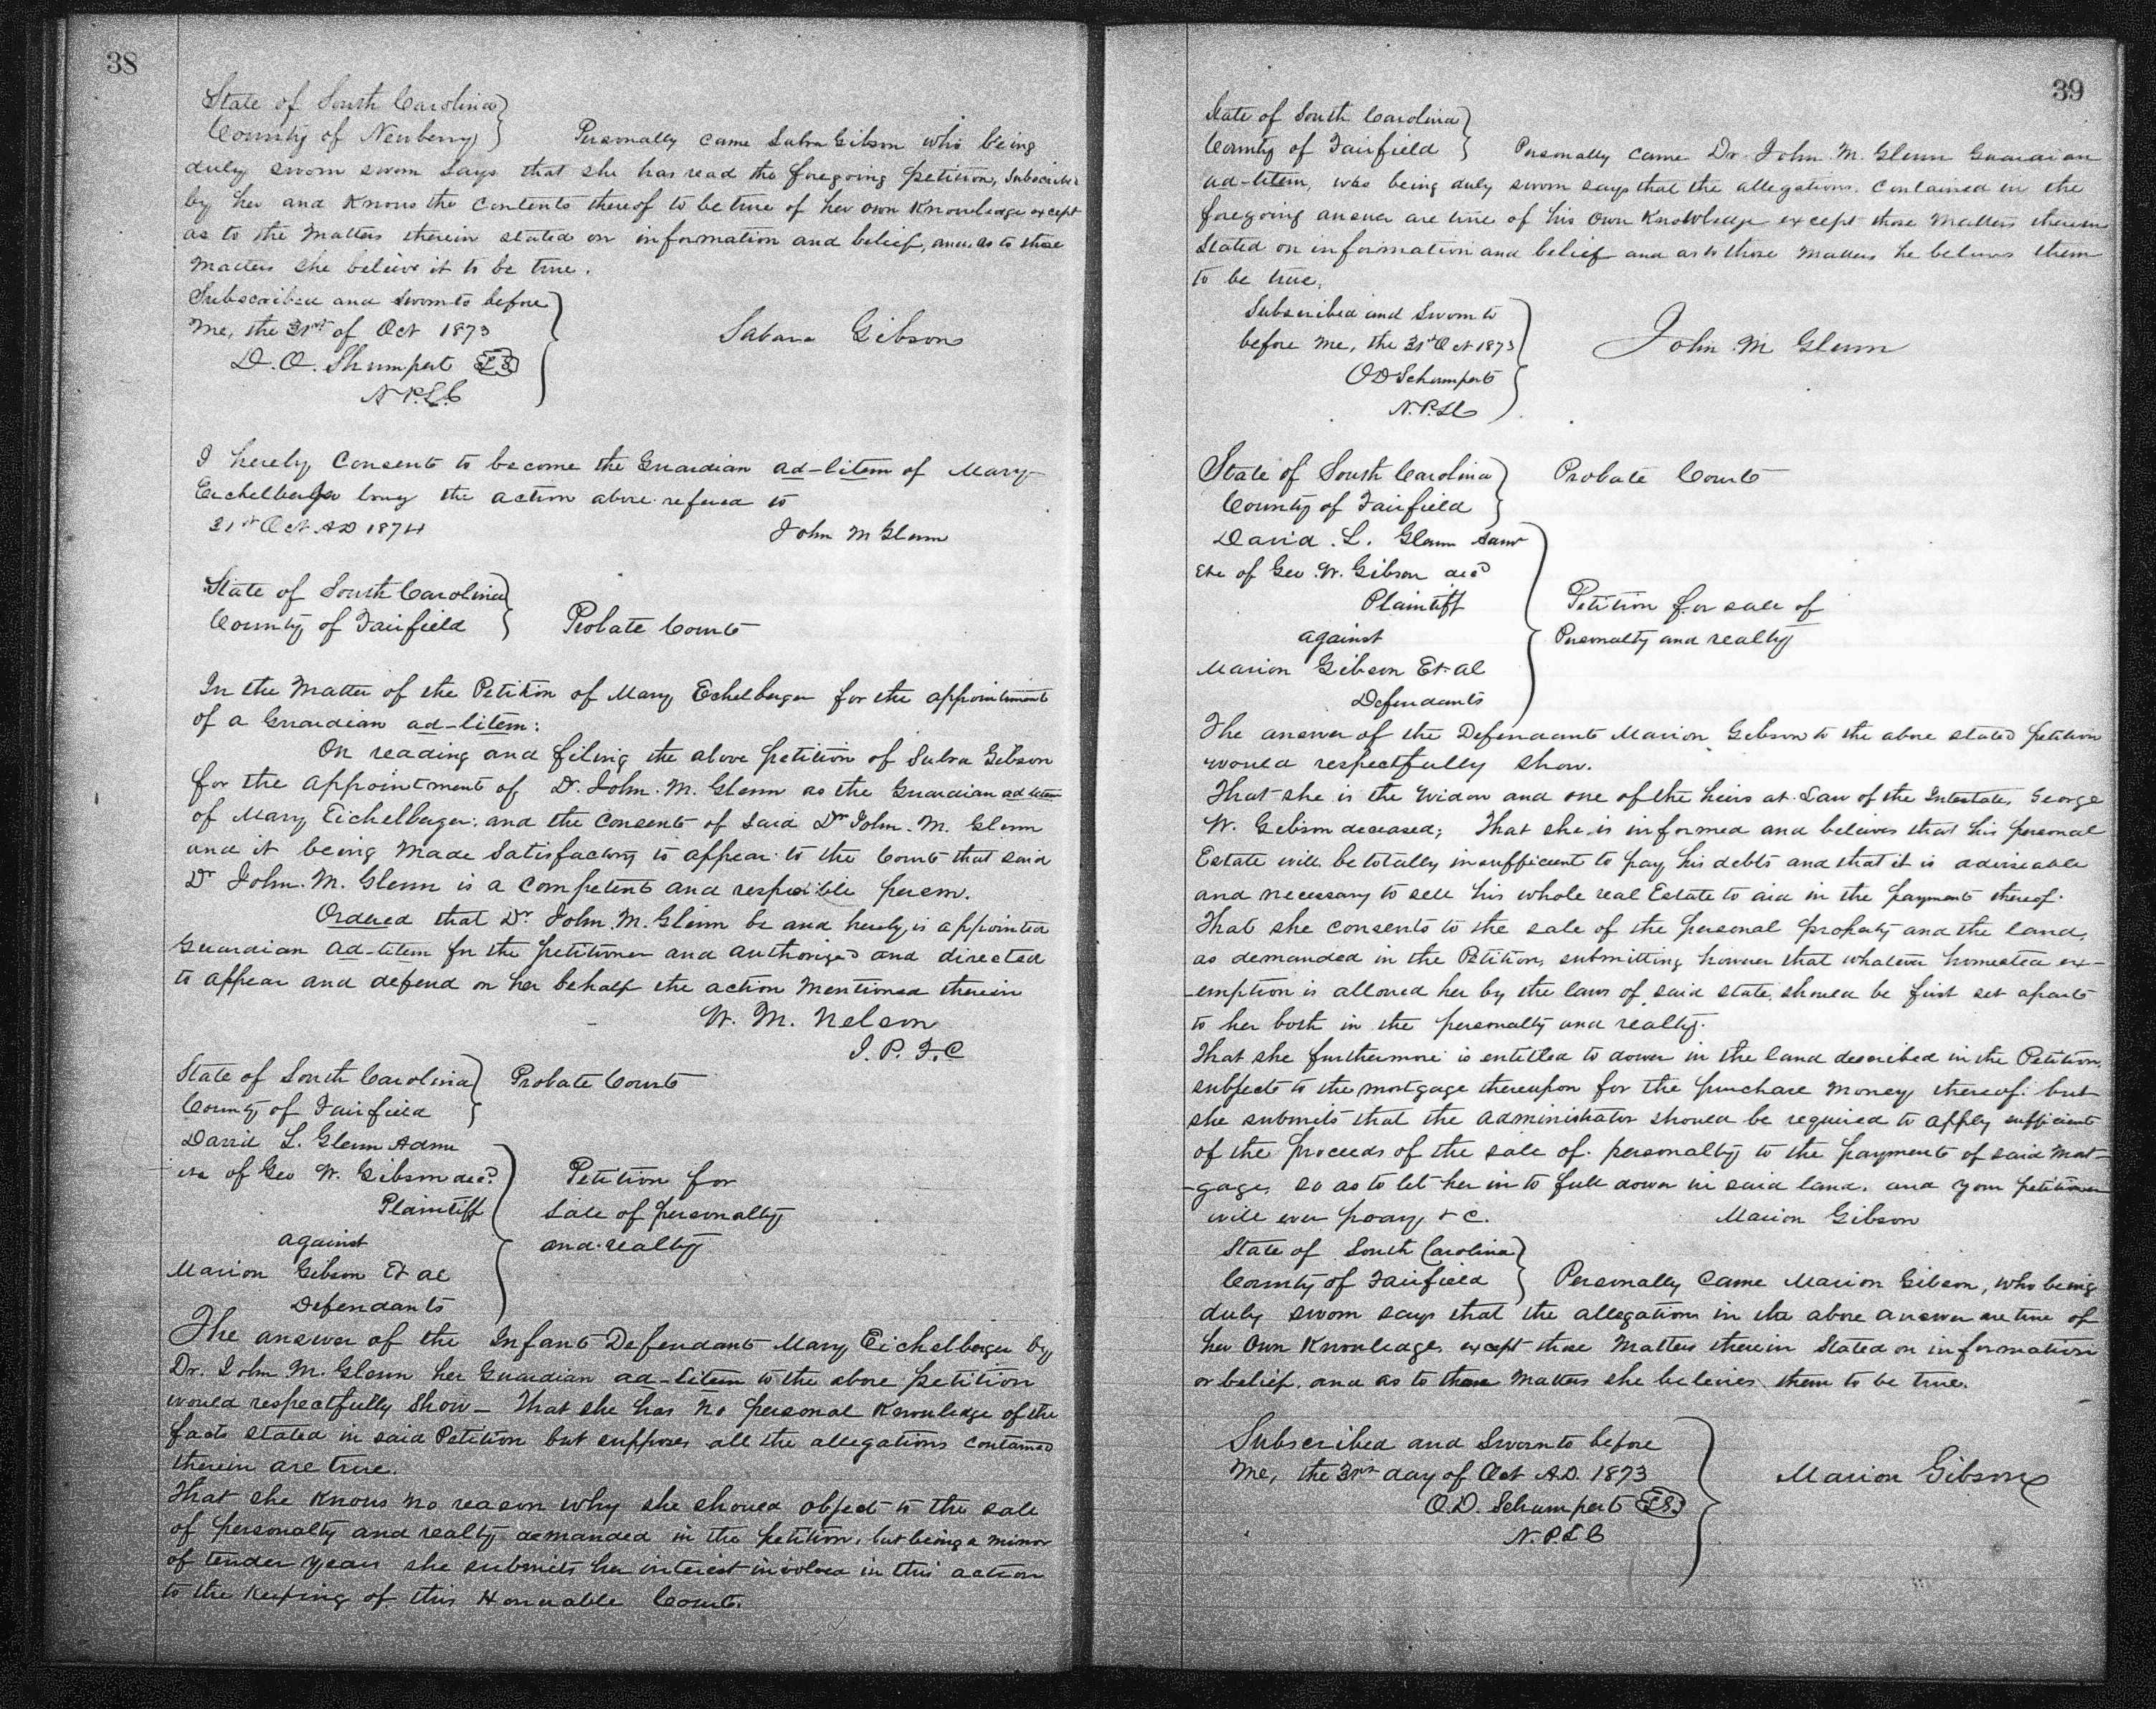 38
State of South Carolina
County of Newberry Personally came Sabra Gibson who being
duly sworn sworn says that she has read the foregoing petition, Subscribed
by her and Knows the Contents thereof to be true of her own Knowledge except
as to the Matters therein stated on information and belief, and as to those
Matters she believe it to be true.
Subscribed and Sworn to before
Me, the 31st of Oct 1873
D. O. Shumpert L S
N.P.S.C
Sabara Gibson
I hereby Consent to become the Guardian ad-litem of Mary
Eichelberger the action above refered to
31st Oct AD 1874
John M Glenn
State of South Carolina
County of Fairfield Probate Court
In the Matter of the Petition of Mary Echelberger for the appointment
of a Guardian ad-litem:
On reading and filing the above petition of Sabra Gibson
for the appointment of Dr. John. M. Glenn as the Guardian ad litem
of Mary Eichelberger: and the Consent of Said Dr John. M. Glenn
and it being Made Satisfactory to appear to the Court that said
Dr John. M. Glenn is a Competent and resposible person.
Ordered that Dr. John. M. Glenn be and hereby is appointed
Guardian ad-litem for the petitioner and authorized and directed
to appear and defend on her behalf the action Mentioned therein
W. M. Nelson
J. P. F. C
State of South Carolina Probate Court
County of Fairfield
David L. Glenn Admr
etc of Geo W. Gibson decd
Plaintiff
against
Marion Gibson Et al
Defendants
Petition for
Sale of personalty
and realty
The answer of the Infant Defendant Mary Eichelberger by
Dr. John M. Glenn her Guardian ad-litem to the above petition
would respectfully Show - That she has no personal Knowledge of the
facts stated in said Petition but supposes all the allegations Contained
therein are true.
That she Knows no reason why she should object to the sale
of personalty and realty demanded in the petition, but being a minor
of tender years she submits her interest involved in this action
to the Keeping of this Honorable Court.
39
State of South Carolina
County of Fairfield Personally Came Dr. John. M. Glenn Guardian
ad-litem, who being duly sworn says that the allegations Contained in the
foregoing answer are true of his own Knowledge except those Matters therein
Stated on information and belief and as to those Matters he believes them
to be true.
Subscribed and Sworn to
before Me, the 31st Oct 1873
O D Schumpert
N.P.S.C
John M Glenn
State of South Carolina Probate Court
County of Fairfield
David. L. Glenn Admr
etc of Geo. W. Gibson decd
Plaintiff
against
Marion Gibson Et al
Defendants
Petition for sale of
Personalty and realty
The answer of the Defendant Marion Gibson to the above stated petition
would respectfully show.
That she is the Widow and one of the heirs at Law of the Intestate, George
W. Gibson deceased; That she is informed and believes that his personal
Estate will be totally insufficient to pay his debts and that it is adviseable
and necessary to sell his whole real Estate to aid in the payment thereof.
That she consents to the sale of the personal property and the land,
as demanded in the Petition, submitting however that whatever homestead ex-
-emption is allowed her by the laws of said state, should be first set apart
to her both in the personalty and realty.
That she furthermore is entitled to dower in the land described in the Petition,
subject to the mortgage thereupon for the purchase Money thereof: but
she submits that the administrator should be required to apply sufficient
of the proceeds of the sale of personalty to the payment of said Mort-
-gage, so as to let her in to full dower in said land, and your petitioner
will ever pray, & C.
Marion Gibson
State of South Carolina
County of Fairfield Personally Came Marion Gibson, who being
duly sworn says that the allegations in the above answer are true of
her own Knowledge, except those Matters therein Stated on information
or belief, and as to those Matters she believes them to be true.
Subscribed and Sworn to before
Me, the 31st day of Oct A.D. 1873
O.D. Schumpert L S.
N.P.S C
Marion Gibson